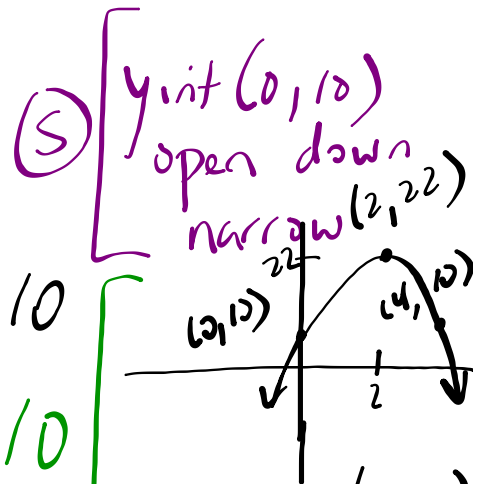 5
y int (0,10)
open down
narrow
(2,22)
22
10
(0,10)
(4,10)
2
10